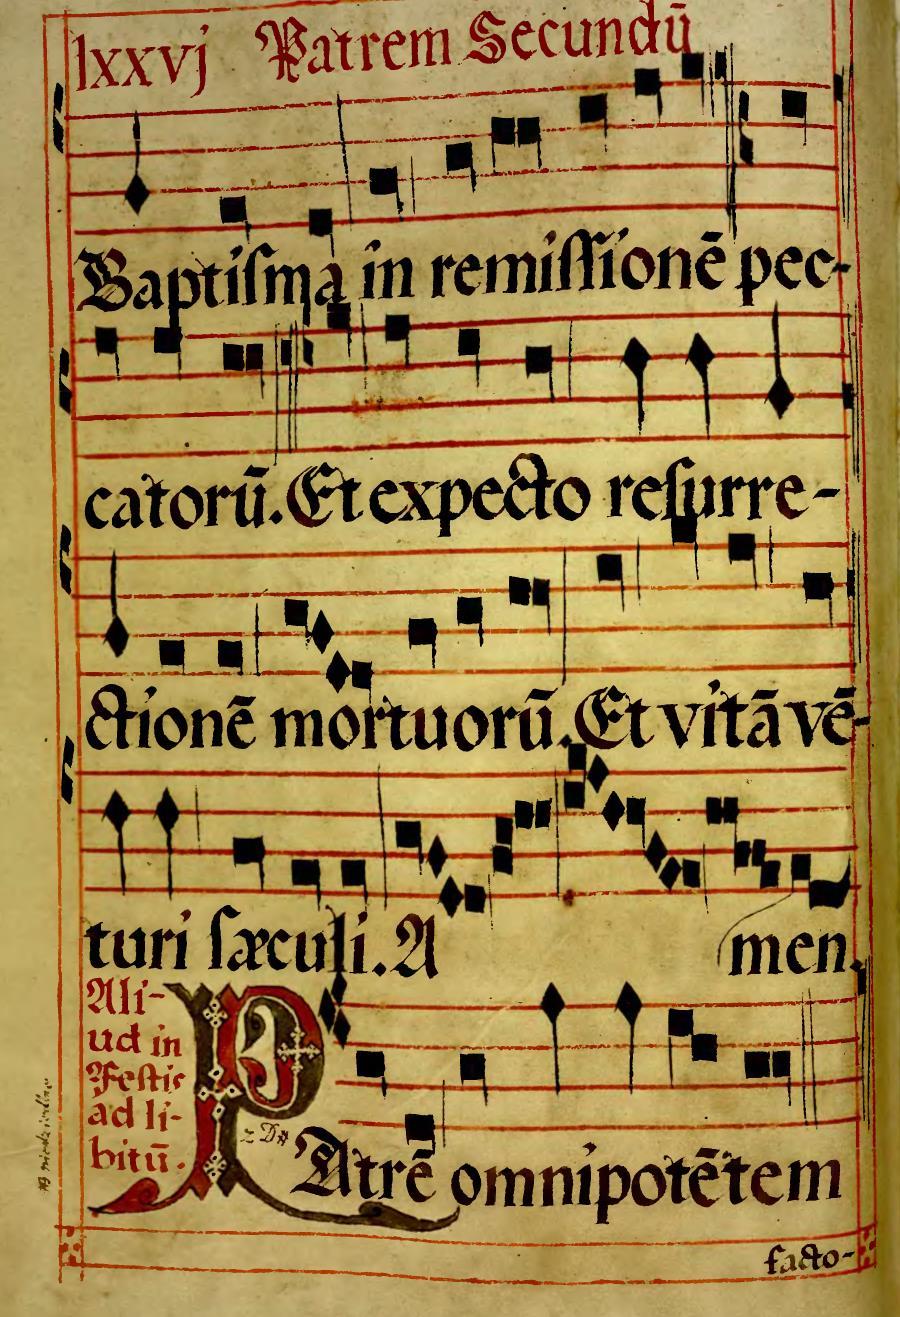 lxxvj Patrem Secundū
Baptiſma in remiſſionē pec-
catorū. Et expecto reſurre-
ctionē mortuorū. Et vitā vē-
turi ſæculi. A men.
Ali-
ud in
Festis
ad li-
bitū.
PAtrē omnipotētem
facto-